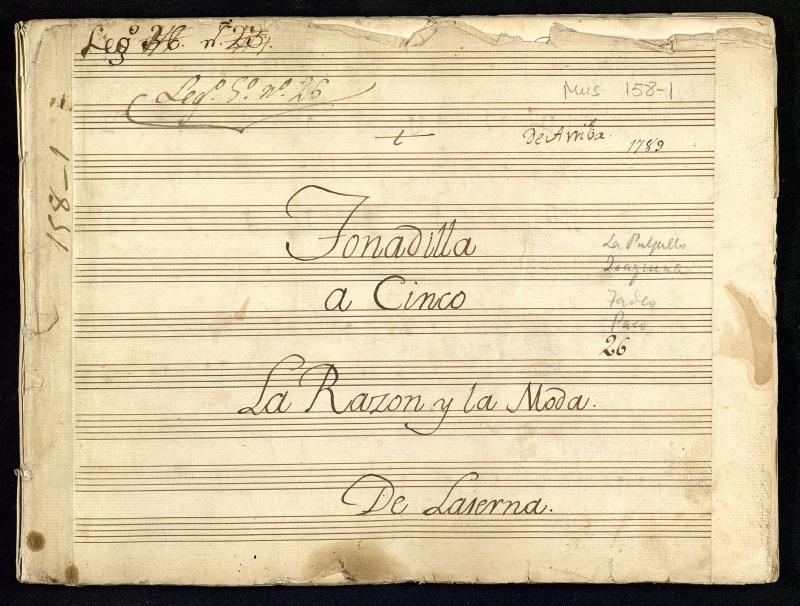 Leg.º nº.
Leg.º 5.º nº. 26
Mus 158-1
De Arriba.
1789
158-1
Tonadilla
a Cinco
La
Joaquina
Tadeo
Paco
26
La Razon y la Moda.
De Laserna.